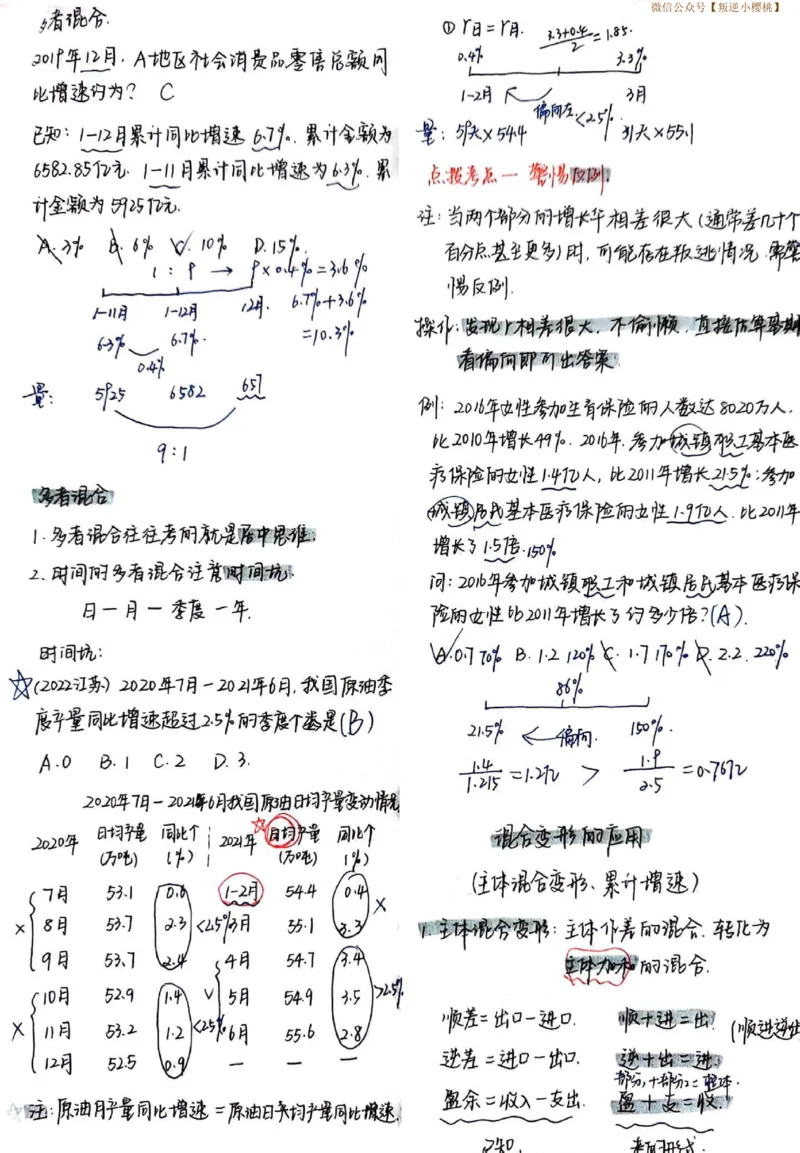 微信公众号【叛逆小樱桃】
多者混合.
2019年12月, A地区社会消费品零售总额同
比增速约为? C
已知: 1-12月累计同比增速 6.7%. 累计金额为
6582.85亿元. 1-11月累计同比增速为6.3%. 累
计金额为5925亿元.
A. 3% B. 6% C. 10% D. 15%.
1 : 9 → 9×0.4%=3.6%
1-11月 1-12月 12月. 6.7%+3.6%
6.3% 6.7%. =10.3%
0.4%
量: 5925 6582 657
9:1
多者混合
1. 多者混合往往考的就是居中思维.
2. 时间的多者混合注意时间坑.
日一月一季度一年.
时间坑:
☆(2022江苏) 2020年7月-2021年6月, 我国原油季
度产量同比增速超过2.5%的季度个数是(B)
A.0 B.1 C.2 D.3.
2020年7月-2021年6月我国原油日均产量变动情况
2020年 日均产量 同比个 2021年 ☆日均产量 同比个
(万吨) (%) (万吨) (%)
7月 53.1 0.6 1-2月 54.4 0.4 ×
× 8月 53.7 2.3 <2.5% 3月 55.1 3.3
9月 53.7 2.4 4月 54.7 3.4
10月 52.9 1.4 √ 5月 54.9 3.5 >2.5%
× 11月 53.2 1.2 <2.5% 6月 55.6 2.8
12月 52.5 0.9 — — —
☆注: 原油月产量同比增速=原油日均产量同比增速
① r日=r月. 3.3+0.4/2=1.85.
0.4% 3.3%
1-2月 偏向左 <2.5% 3月
量: 59天×54.4 31天×55.1
点拨考点一 警惕反例.
注: 当两个部分的增长率相差很大(通常差几十个
百分点甚至更多)时, 可能存在叛逃情况. 需警
惕反例.
操作: 发现r相差很大, 不偷懒, 直接估算基期
看偏向即可出答案.
例: 2016年女性参加生育保险的人数达8020万人,
比2010年增长49%. 2016年, 参加城镇职工基本医
疗保险的女性1.4亿人, 比2011年增长21.5%; 参加
城镇居民基本医疗保险的女性1.9亿人. 比2011年
增长了1.5倍. 150%
问: 2016年参加城镇职工和城镇居民基本医疗保
险的女性比2011年增长了约多少倍? (A).
A. 0.7 70% B. 1.2 120% C. 1.7 170% D. 2.2. 220%
86%
21.5% ← 偏向. 150%.
1.4/1.215=1.2亿 > 1.9/2.5=0.76亿
混合变形的应用
(主体混合变形、累计增速)
1. 主体混合变形: 主体作差的混合. 转化为
主体加和的混合.
顺差=出口-进口. 顺+进=出. (顺进逆出
逆差=进口-出口. 逆+出=进
部分1+部分2=整体.
盈余=收入-支出. 盈+支=收.
已知.